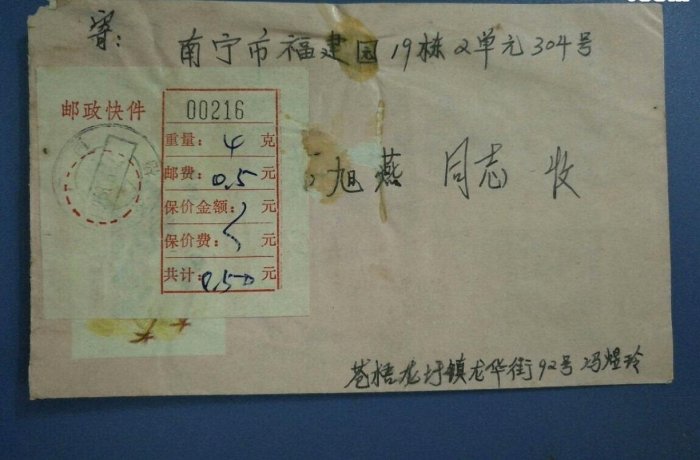 寄: 南宁市福建园19栋2单元304号
邮政快件
00216
重量: 4 克
邮费: 0.5 元
保价金额: 元
保价费: 元
共计: 0.50 元
旭燕 同志 收
苍梧龙圩镇龙华街92号冯煜玲